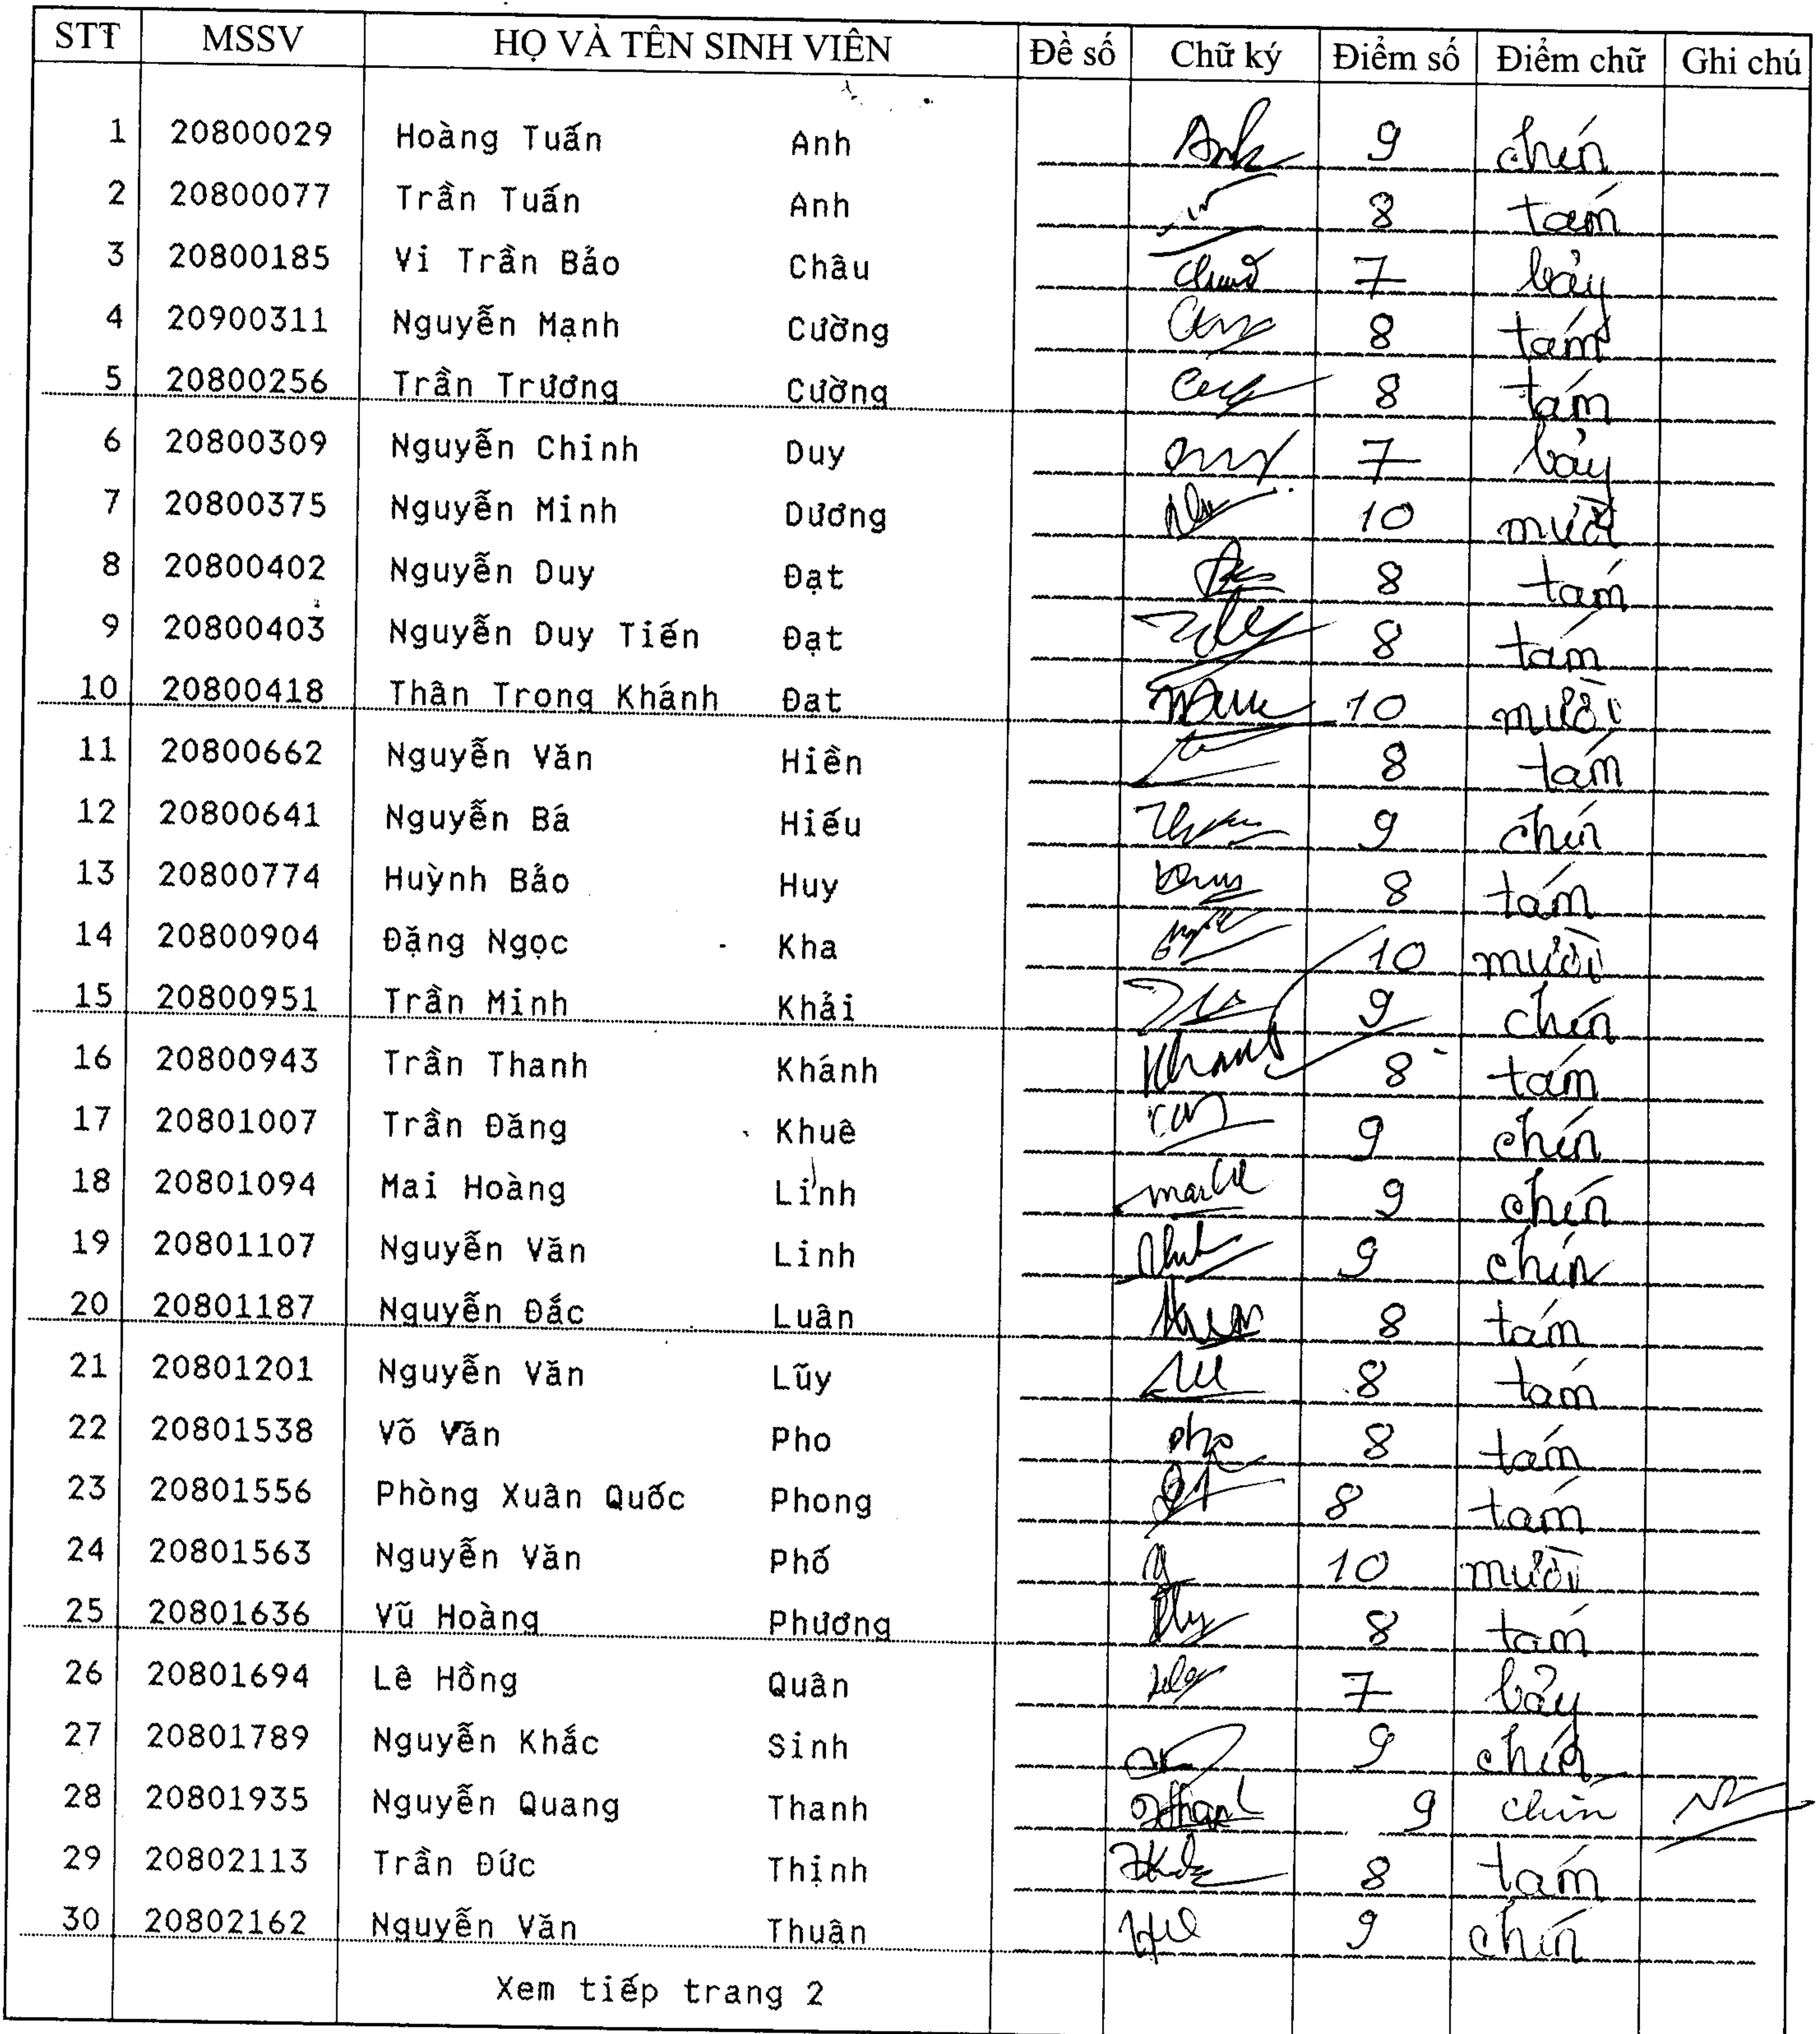 STT MSSV HỌ VÀ TÊN SINH VIÊN Đề số Chữ ký Điểm số Điểm chữ Ghi chú
1 20800029 Hoàng Tuấn Anh Anh 9 chín
2 20800077 Trần Tuấn Anh 8 tám
3 20800185 Vi Trần Bảo Châu 7 bảy
4 20900311 Nguyễn Mạnh Cường 8 tám
5 20800256 Trần Trương Cường 8 tám
6 20800309 Nguyễn Chinh Duy 7 bảy
7 20800375 Nguyễn Minh Dương 10 mười
8 20800402 Nguyễn Duy Đạt 8 tám
9 20800403 Nguyễn Duy Tiến Đạt 8 tám
10 20800418 Thân Trọng Khánh Đạt 10 mười
11 20800662 Nguyễn Văn Hiền 8 tám
12 20800641 Nguyễn Bá Hiếu 9 chín
13 20800774 Huỳnh Bảo Huy 8 tám
14 20800904 Đặng Ngọc Kha 10 mười
15 20800951 Trần Minh Khải 9 chín
16 20800943 Trần Thanh Khánh Khanh 8 tám
17 20801007 Trần Đăng Khuê 9 chín
18 20801094 Mai Hoàng Linh 9 chín
19 20801107 Nguyễn Văn Linh 9 chín
20 20801187 Nguyễn Đắc Luân 8 tám
21 20801201 Nguyễn Văn Lũy 8 tám
22 20801538 Võ Văn Pho pho 8 tám
23 20801556 Phòng Xuân Quốc Phong 8 tám
24 20801563 Nguyễn Văn Phố 10 mười
25 20801636 Vũ Hoàng Phương 8 tám
26 20801694 Lê Hồng Quân 7 bảy
27 20801789 Nguyễn Khắc Sinh 9 chín
28 20801935 Nguyễn Quang Thanh 9 chín
29 20802113 Trần Đức Thịnh 8 tám
30 20802162 Nguyễn Văn Thuận 9 chín
Xem tiếp trang 2